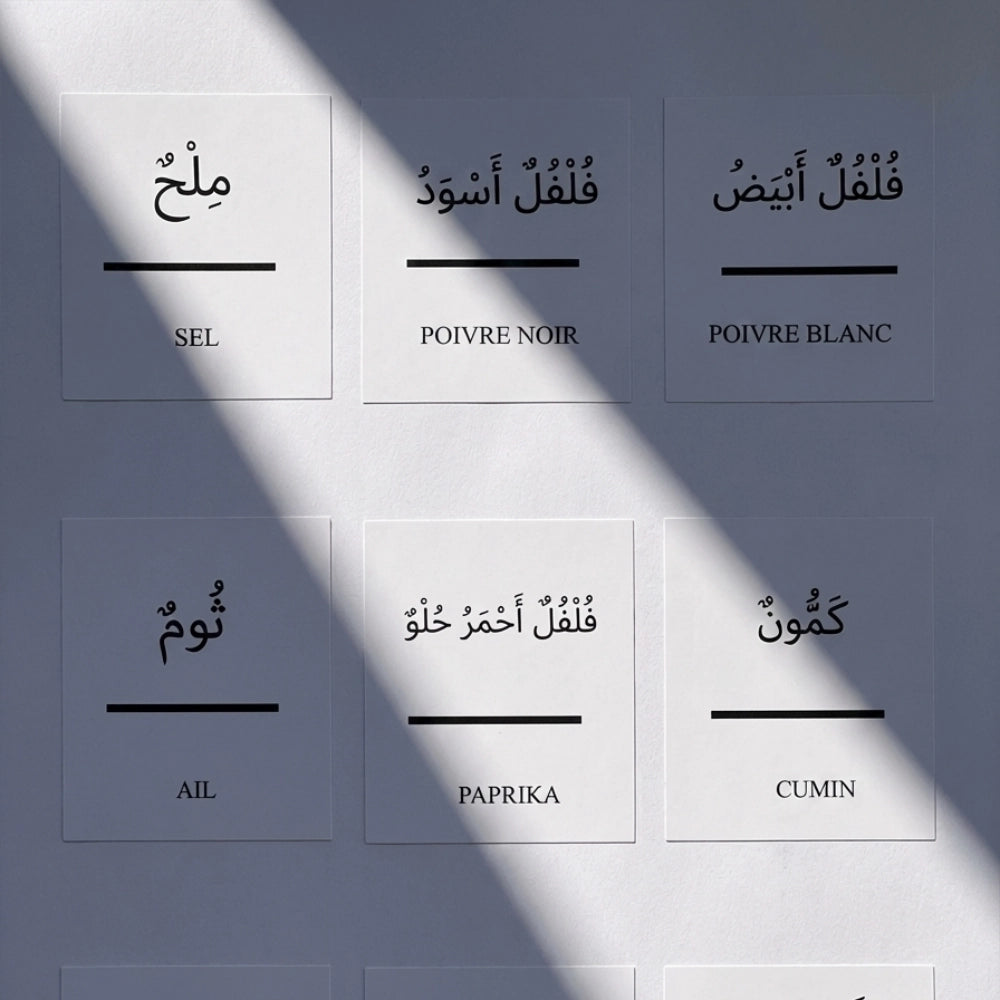 مِلْحٌ
SEL
فُلْفُلٌ أَسْوَدُ
POIVRE NOIR
فُلْفُلٌ أَبْيَضُ
POIVRE BLANC
ثُومٌ
AIL
فُلْفُلٌ أَحْمَرُ حُلْوٌ
PAPRIKA
كَمُّونٌ
CUMIN